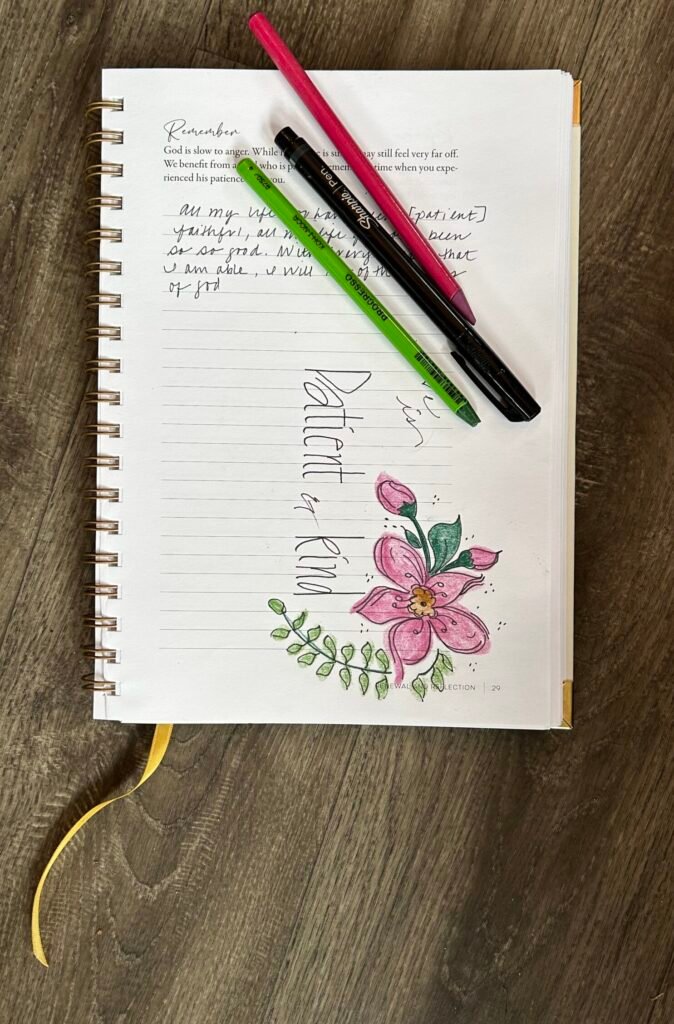 Remember
God is slow to anger. While is may still feel very far off.
We benefit from a who is time when you expe-
rienced his patience you.
All my life [patient]
faithful, all my life been
so so good. With every that
i am able, i will of the
of god
is
Patient & Kind
Sharpie. | Pen
PROGRESSO
KOH-I-NOOR
REFLECTION | 29